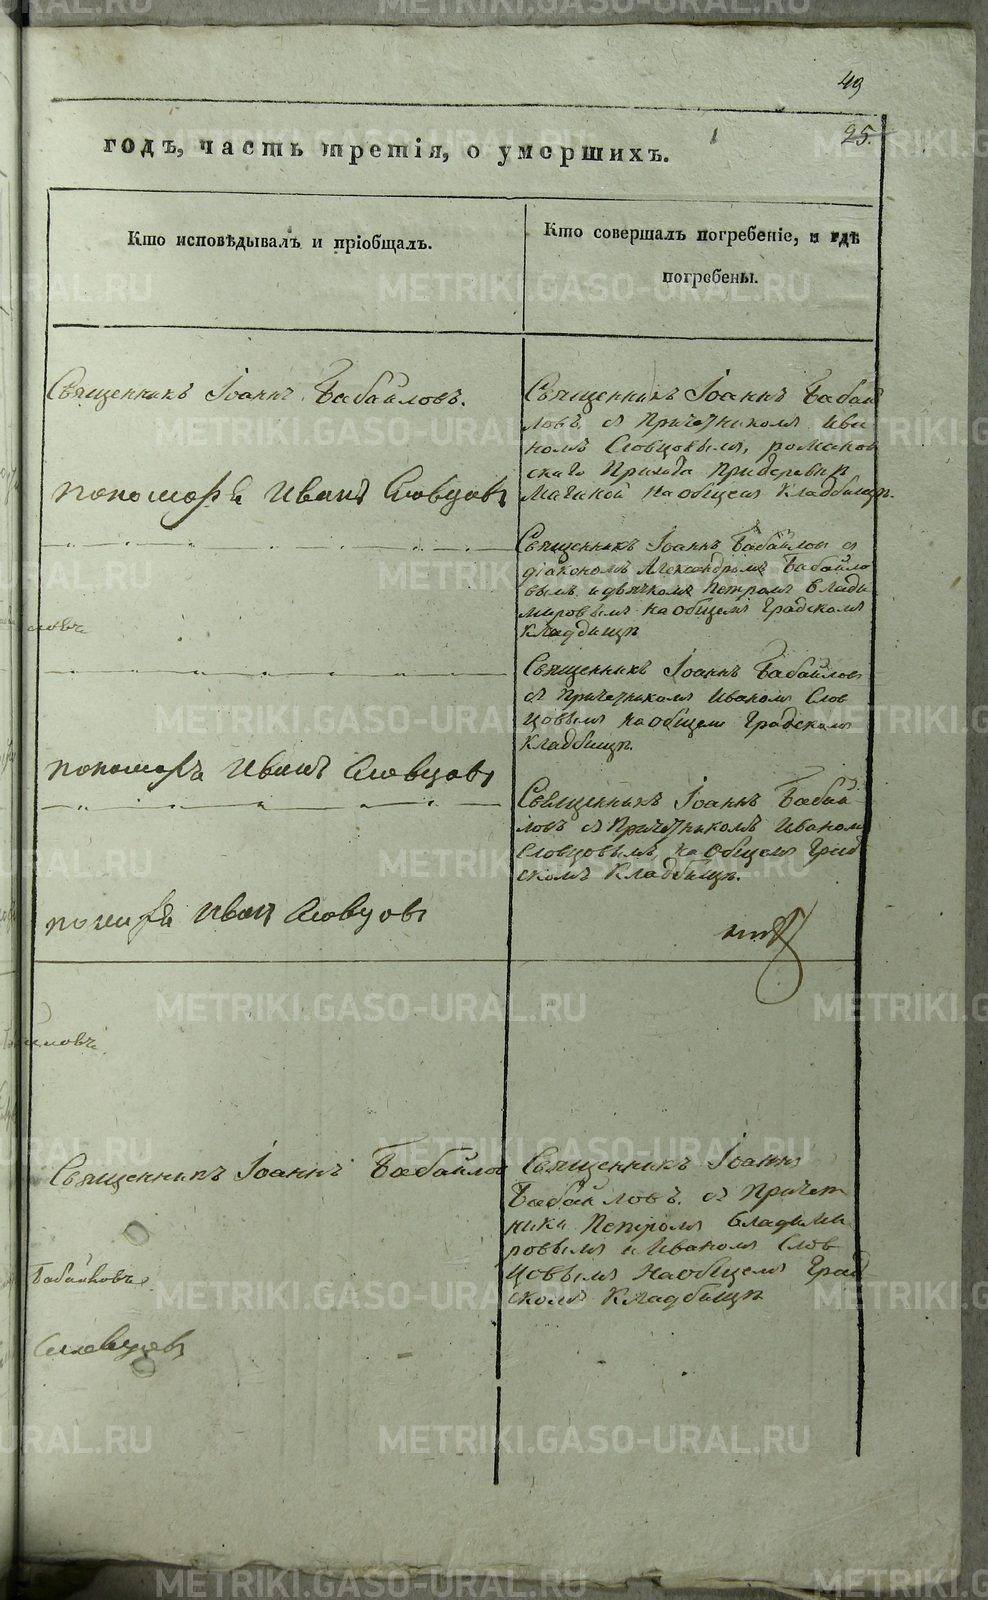 49
25.
годъ, часть третія, о умершихъ.
Кто исповѣдывалъ и пріобщалъ.
Кто совершалъ погребеніе, и гдѣ
погребены.
Священникъ Іоаннъ Бабайловъ.
пономарь Иванъ Словцовъ
Священникъ Іоаннъ Бабай
ловъ, съ Причетникомъ Ива
номъ Словцовымъ,
скаго Прихода при деревни
на общемъ Кладбищѣ.
Священникъ Іоаннъ Бабайловъ съ
діакономъ Александромъ Бабайло
вымъ и дьячкомъ Петромъ Влади
мировымъ на общемъ Градскомъ
Кладбищѣ
Священникъ Іоаннъ Бабайловъ
съ Причетникомъ Иваномъ Слов
цовымъ на общемъ Градскомъ
Кладбищѣ.
пономарь Иванъ Словцовъ
Священникъ Іоаннъ Бабай
ловъ съ Причетникомъ Иваномъ
Словцовымъ, на Общемъ Град
скомъ Кладбищѣ.
Иванъ Словцовъ
Священникъ Іоаннъ Бабайловъ
Священникъ Іоаннъ
Бабайловъ. съ Причет
ники Петромъ Владими
ровымъ и Иваномъ Слов
цовымъ на Общемъ Град
скомъ Кладбищѣ
Словцовъ
METRIKI.GASO-URAL.RU